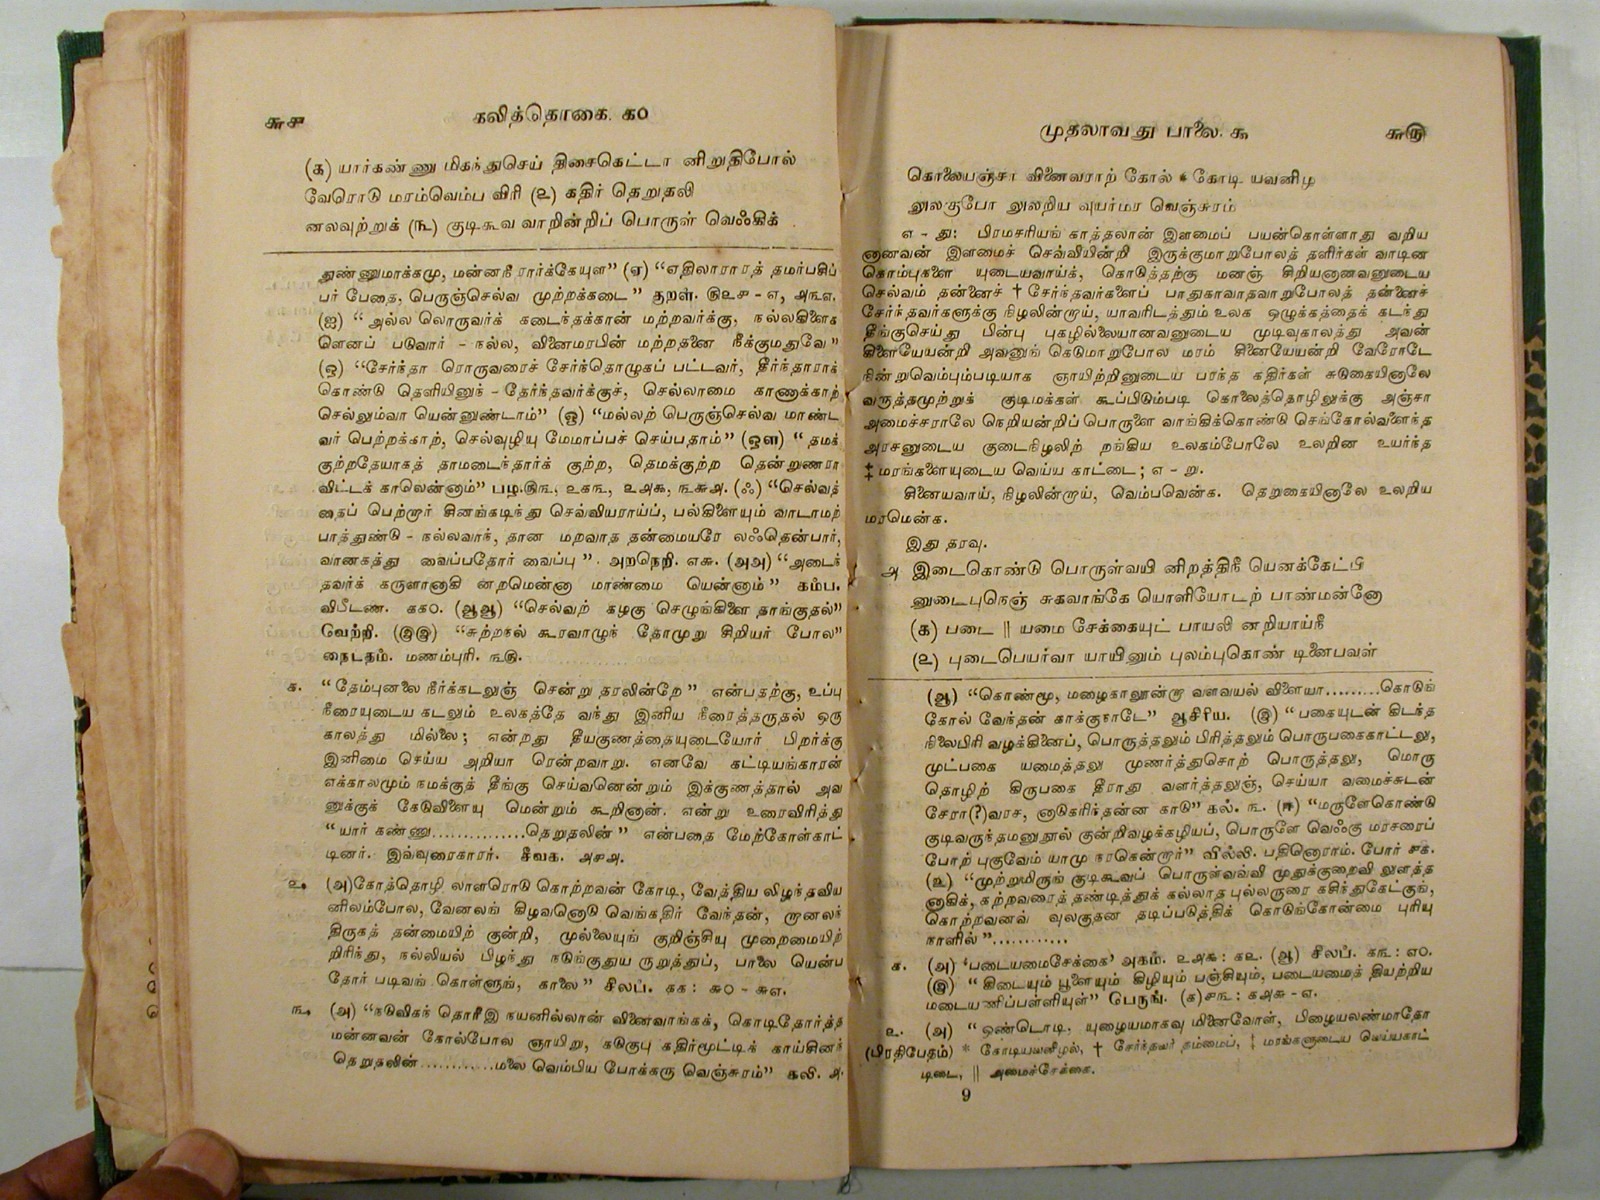 சுச
கலித்தொகை. க௦
(க) யார்கண்ணு மிகந்துசெய் திசைகெட்டா னிறுதிபோல்
வேரொடு மரம்வெம்ப விரி (உ) கதிர் தெறுதலி
னலவுற்றுக் (ங) குடிகூவ வாறின்றிப் பொருள் வெஃகிக்
துண்ணுமாக்கமு, மன்னநீ ரார்க்கேயுள” (ஏ) “எதிலாராரத் தமர்பசிப்
பர் பேதை, பெருஞ்செல்வ முற்றக்கடை” குறள். ௫௨௪ - எ, அ௩எ.
(ஐ) “ அல்ல லொருவர்க் கடைந்தக்கான் மற்றவர்க்கு, நல்லகிளைக
ளெனப் படுவார் - நல்ல, வினைமரபின் மற்றதனை நீக்குமதுவே”
(ஒ) “சேர்ந்தா ரொருவரைச் சேர்ந்தொழுகப் பட்டவர், தீர்ந்தாராக்
கொண்டு தெளியினுந் - தேர்ந்தவர்க்குச், செல்லாமை காணுக்காற்
செல்லும்வா யென்னுண்டாம்” (ஓ) “மல்லற் பெருஞ்செல்வ மாண்ட
வர் பெற்றக்காற், செல்வுழியு மேமாப்பச் செய்பதாம்” (ஔ) “ தமக்
குற்றதேயாகத் தாமடைந்தார்க் குற்ற, தெமக்குற்ற தென்றுணரா
விட்டக் காலென்னாம்” பழ.௫௩, ௨௧௩, ௨௮௬, ௩௬௮. (ஃ) “செல்வத்
தைப் பெற்றார் சினங்கடிந்து செவ்வியராய்ப், பல்கிளையும் வாடாமற்
பாத்துண்டு - நல்லவாந், தான மறவாத தன்மையரே லஃதென்பார்,
வானகத்து வைப்பதோர் வைப்பு” அறநெறி. எ௬. (அஅ) “அடைக்
தவர்க் கருளானாகி னறமென்னா மாண்மை யென்னாம்” கம்ப.
விபீடண. ௧௧௦. (ஆஆ) “செல்வற் கழகு செழுங்கிளை தாங்குதல்”
வெற்றி. (இஇ) “சுற்றநல் கூரவாழுந் தோமுறு சிறியர் போல”
நைடதம். மணம்புரி. ௩௫.
க. “ தேம்புனலை நீர்க்கடலுஞ் சென்று தரலின்றே” என்பதற்கு, உப்பு
நீரையுடைய கடலும் உலகத்தே வந்து இனிய நீரைத்தருதல் ஒரு
காலத்து மில்லை; என்றது தீயகுணத்தையுடையோர் பிறர்க்கு
இனிமை செய்ய அறியா ரென்றவாறு. எனவே கட்டியங்காரன்
எக்காலமும் நமக்குத் தீங்கு செய்வனென்றும் இக்குணத்தால் அவ
னுக்குக் கேடுவிளையு மென்றும் கூறினான். என்று உரைவிரித்து
“யார் கண்ணு...............தெறுதலின்” என்பதை மேற்கோள்காட்
டினர். இவ்வுரைகாரர். சீவக. அ௪அ.
உ. (அ)கோத்தொழி லாளரொடு கொற்றவன் கோடி, வேத்திய லிழந்தவிய
னிலம்போல, வேனலங் கிழவனொடு வெங்கதிர் வேந்தன், றானலந்
திருகத் தன்மையிற் குன்றி, முல்லையுங் குறிஞ்சியு முறைமையிற்
றிரிந்து, நல்லியல் பிழந்து நடுங்குதுய ருறுத்துப், பாலை யென்ப
தோர் படிவங் கொள்ளுங், காலை” சிலப். ௧௧ : ௬௦ - ௬எ.
ங. (அ) “நடுவிகந் தொரீஇ நயனில்லான் வினைவாங்கக், கொடிதோர்த்த
மன்னவன் கோல்போல ஞாயிறு, கடுகுபு கதிர்மூட்டிக் காய்சினந்
தெறுதலின்............மலை வெம்பிய போக்கரு வெஞ்சுரம்” கலி. அ.
முதலாவது பாலை. ௯
சுரு
கொலையஞ்சா வினைவராற் கோல் * கோடி யவனிழ
லுலகுபோ லுலறிய வுயர்மர வெஞ்சுரம்
எ - து: பிரமசரியங் காத்தலான் இளமைப் பயன்கொள்ளாது வறிய
னானவன் இளமைச் செவ்வியின்றி இருக்குமாறுபோலத் தளிர்கள் வாடின
கொம்புகளை யுடையவாய்க், கொடுத்தற்கு மனஞ் சிறியனானவனுடைய
செல்வம் தன்னைச் † சேர்ந்தவர்களைப் பாதுகாவாதவாறுபோலத் தன்னைச்
சேர்ந்தவர்களுக்கு நிழலின்றாய், யாவரிடத்தும் உலக ஒழுக்கத்தைக் கடந்து
தீங்குசெய்து பின்பு புகழில்லையானவனுடைய முடிவுகாலத்து அவன்
கிளையேயன்றி அவனுங் கெடுமாறுபோல மரம் சினையேயன்றி வேரோடே
நின்றுவெம்பும்படியாக ஞாயிற்றினுடைய பரந்த கதிர்கள் சுடுகையினாலே
வருத்தமுற்றுக் குடிமக்கள் கூப்பிடும்படி கொலைத்தொழிலுக்கு அஞ்சா
அமைச்சராலே நெறியன்றிப் பொருளை வாங்கிக்கொண்டு செங்கோல்வளைந்த
அரசனுடைய குடைநிழலிற் றங்கிய உலகம்போலே உலறின உயர்ந்த
‡ மரங்களையுடைய வெய்ய காட்டை; எ - று.
சினையவாய், நிழலின்றாய், வெம்பவென்க. தெறுகையினாலே உலறிய
மரமென்க.
இது தரவு.
அ இடைகொண்டு பொருள்வயி னிறத்திநீ யெனக்கேட்பி
னுடைபுநெஞ் சுகவாங்கே யொளியோடற் பாண்மன்னோ
(க) படை || யமை சேக்கையுட் பாயலி னறியாய்நீ
(உ) புடைபெயர்வா யாயினும் புலம்புகொண் டினைபவள்
(ஆ) “கொண்மூ, மழைகாலூன்றா வளவயல் விளையா.........கொடுங்
கோல் வேந்தன் காக்குநாடே” ஆசிரிய. (இ) “பகையுடன் கிடந்த
நிலைபிரி வழக்கினைப், பொருத்தலும் பிரித்தலும் பொருபகைகாட்டலு,
முட்பகை யமைத்தலு முணர்த்துசொற் பொருத்தலு, மொரு
தொழிற் கிருபகை தீராது வளர்த்தலுஞ், செய்யா வமைச்சுடன்
சேரா(?)வரச, னாடுகரிந்தன்ன காடு” கல். ௩. (ஈ) “மருளேகொண்டு
குடிவருந்தமனுநூல் குன்றிவழக்கழியப், பொருளே வெஃகு மரசரைப்
போற் புகுவேம் யாமு நரகென்றார்” வில்லி. பதினொராம். போர் ௪௧.
(உ) “முற்றுமிருங் குடிகூவப் பொருள்வவ்வி முதுக்குறைவி லுளத்த
னாகிக், கற்றவரைத் தண்டித்துக் கல்லாத புல்லருரை கசிந்துகேட்குங்,
கொற்றவனவ் வுலகுதன தடிப்படுத்திக் கொடுங்கோன்மை புரியு
நாளில்”............
க. (அ) ‘படையமைசேக்கை’ அகம். ௨௮௬ : ௧௨. (ஆ) சிலப். ௧௩ : எ௦.
(இ) “கிடையும் பூளையும் கிழியும் பஞ்சியும், படையமைத் தியற்றிய
மடையணிப்பள்ளியுள்” பெருங். (க) ௪௩ : ௧௮௬ - எ.
உ. (அ) “ ஒண்டொடி, யுழையமாகவு மினைவோள், பிழையலண்மாதோ
(பிரதிபேதம்) * கோடியவனிழல், † சேர்ந்தவர் தம்மைப், ‡ மரங்களுடைய வெய்யகாட்
டிடை, || அமைச்சேக்கை.
9